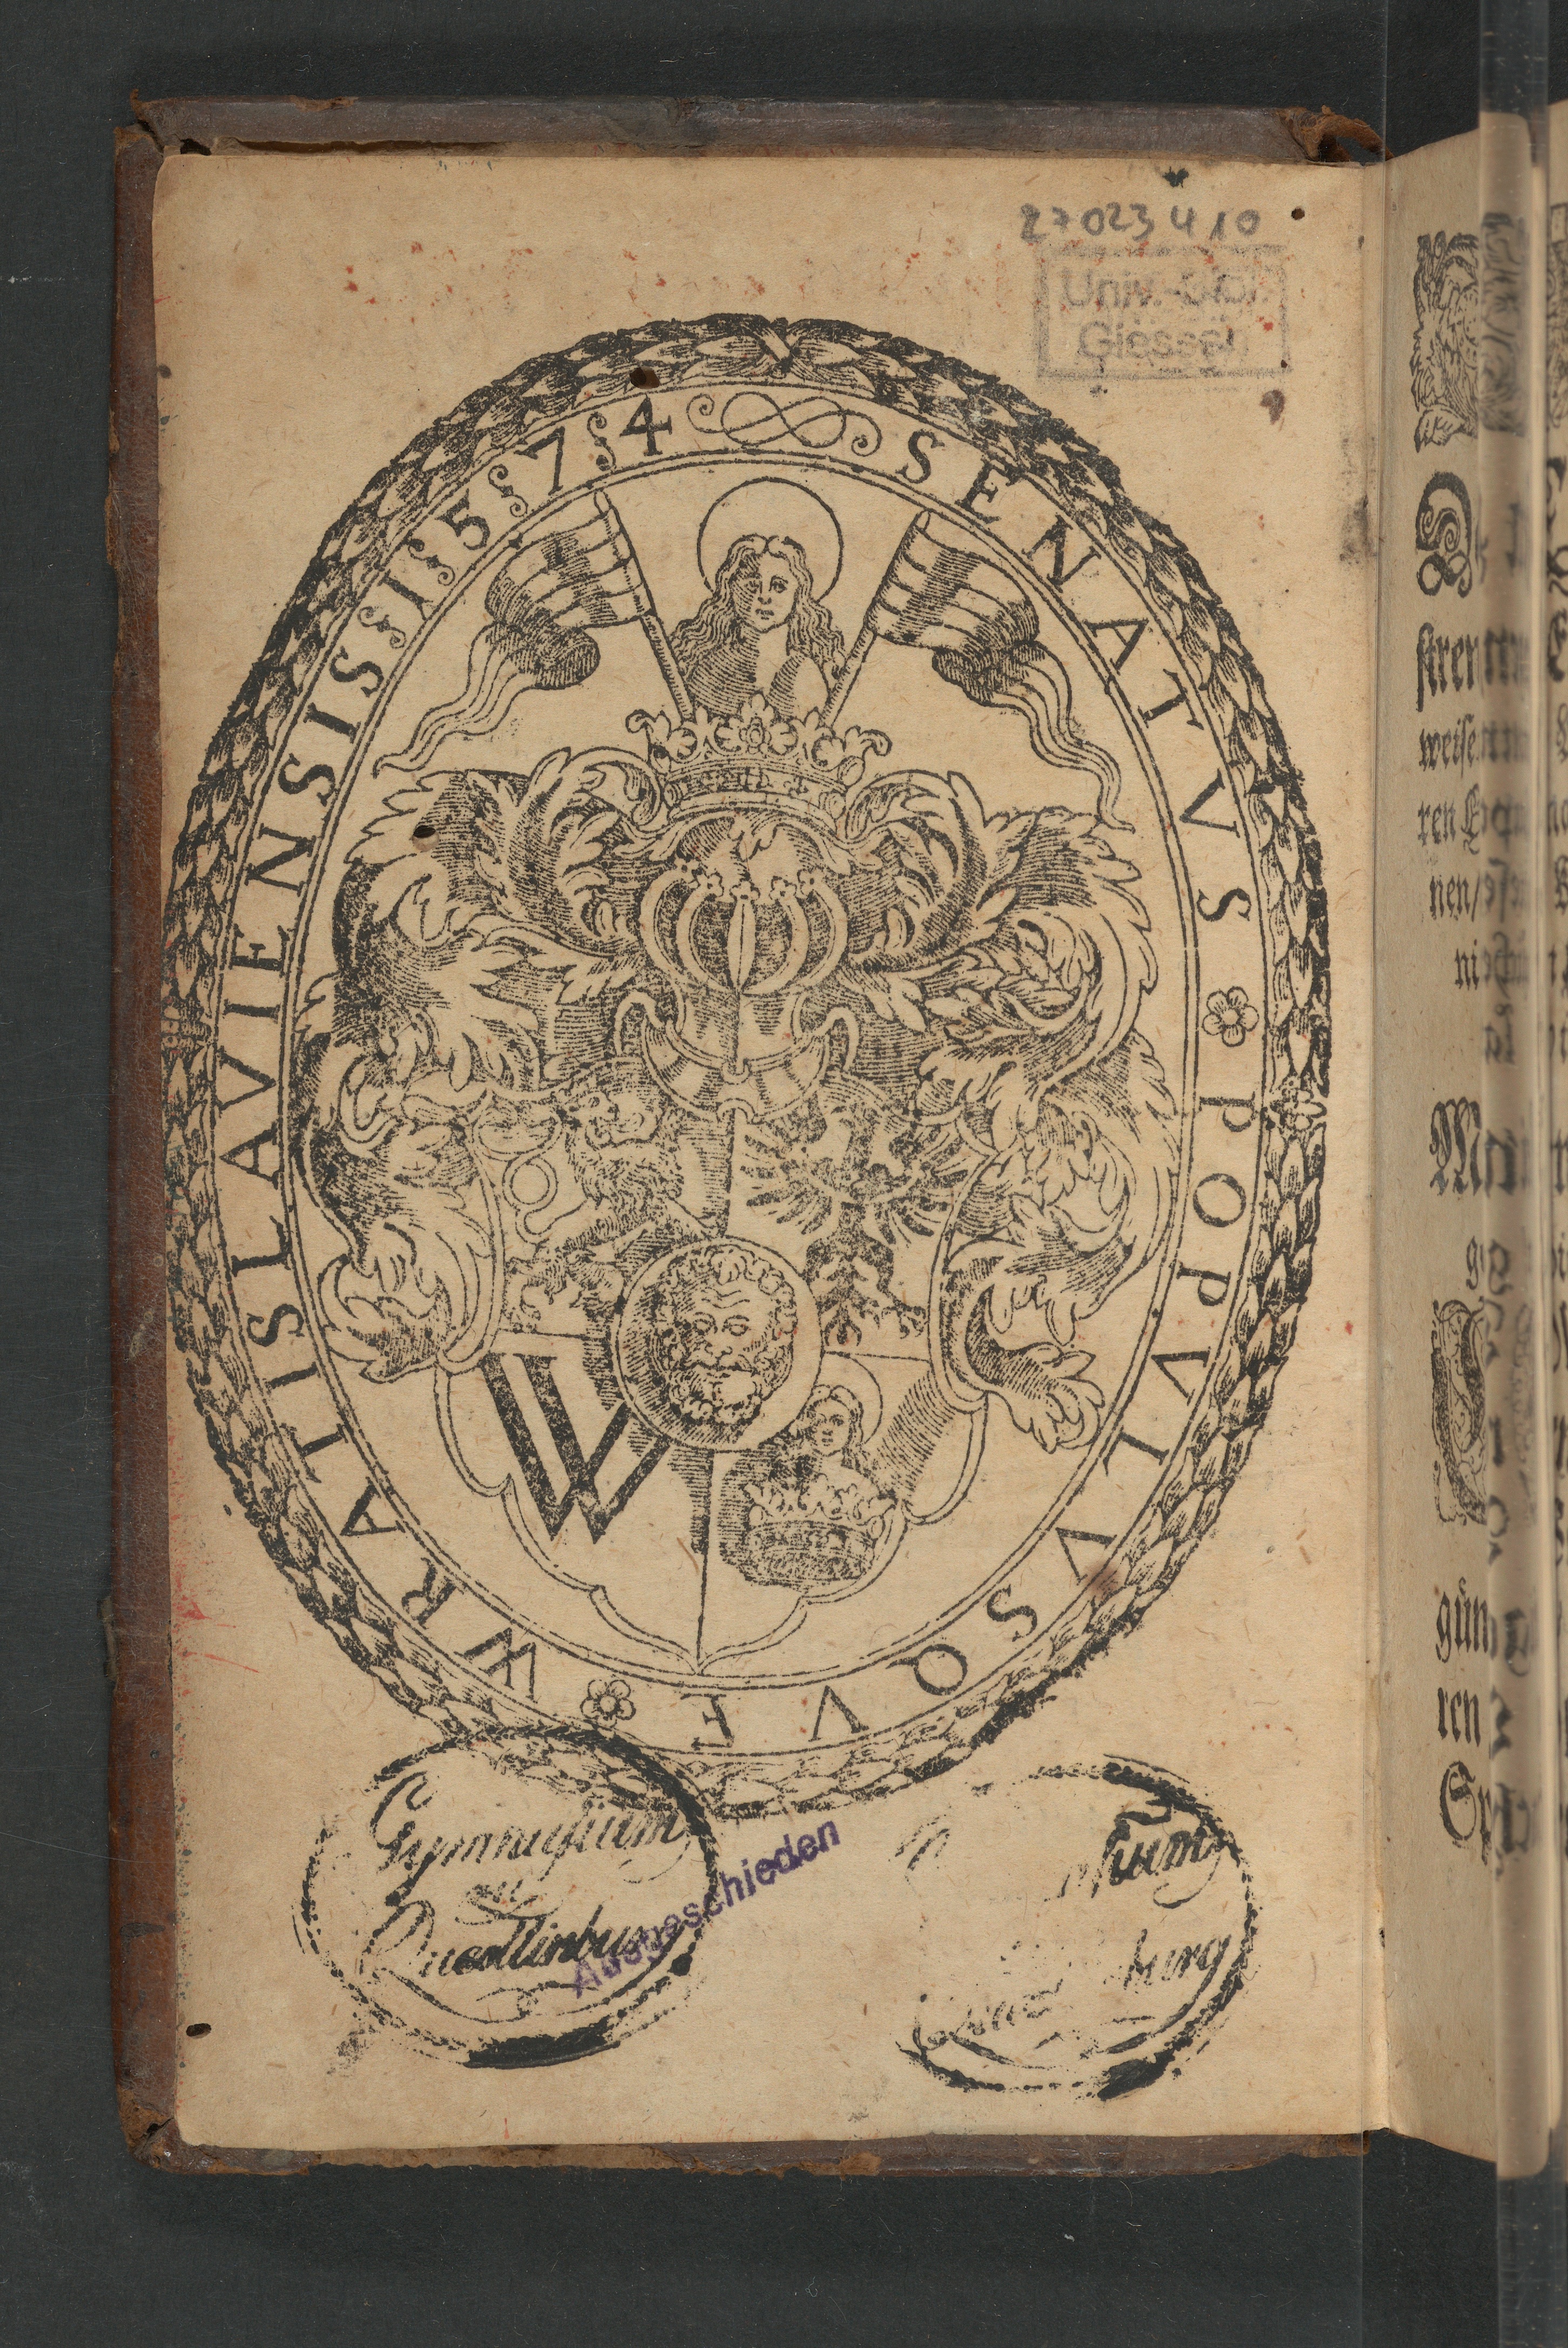 27023410
Univ.-Bibl.
Giessen
SENATVS POPVLVSQVE WRATISLAVIENSIS 1574
W
Gymnasium
zu
Quedlinburg
Ausgeschieden
sium
burg
stren
weise
ren
nen/
ni
M
gün
ren
Sp